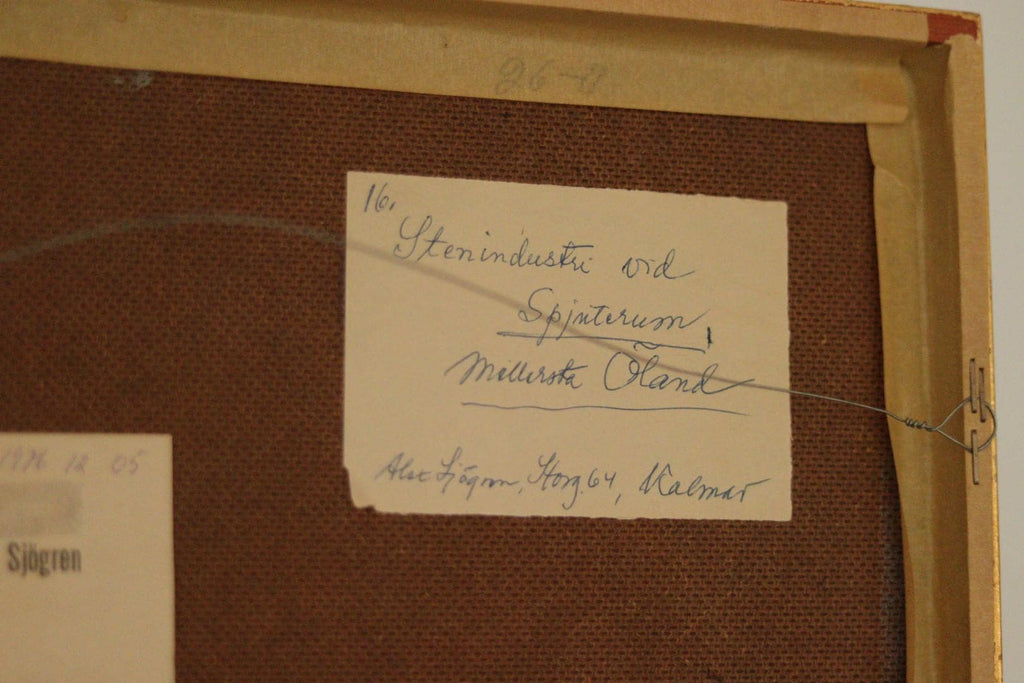 16.
Stenindustri vid
Spjuterum,
Mellersta Öland
Alex Sjögren, Storg. 64, Kalmar
1976 12 05
Sjögren